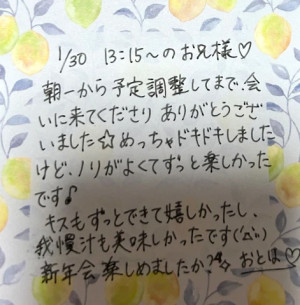 1/30 13:15〜のお兄様♡
朝一から予定調整してまで、会
いに来てくださり ありがとうござ
いました☆めっちゃドキドキしました
けど、ノリがよくてずっと楽しかった
です♪
キスもずっとできて嬉しかったし、
我慢汁も美味しかったです(´ω`)
新年会楽しめましたか?☆ おとは♡